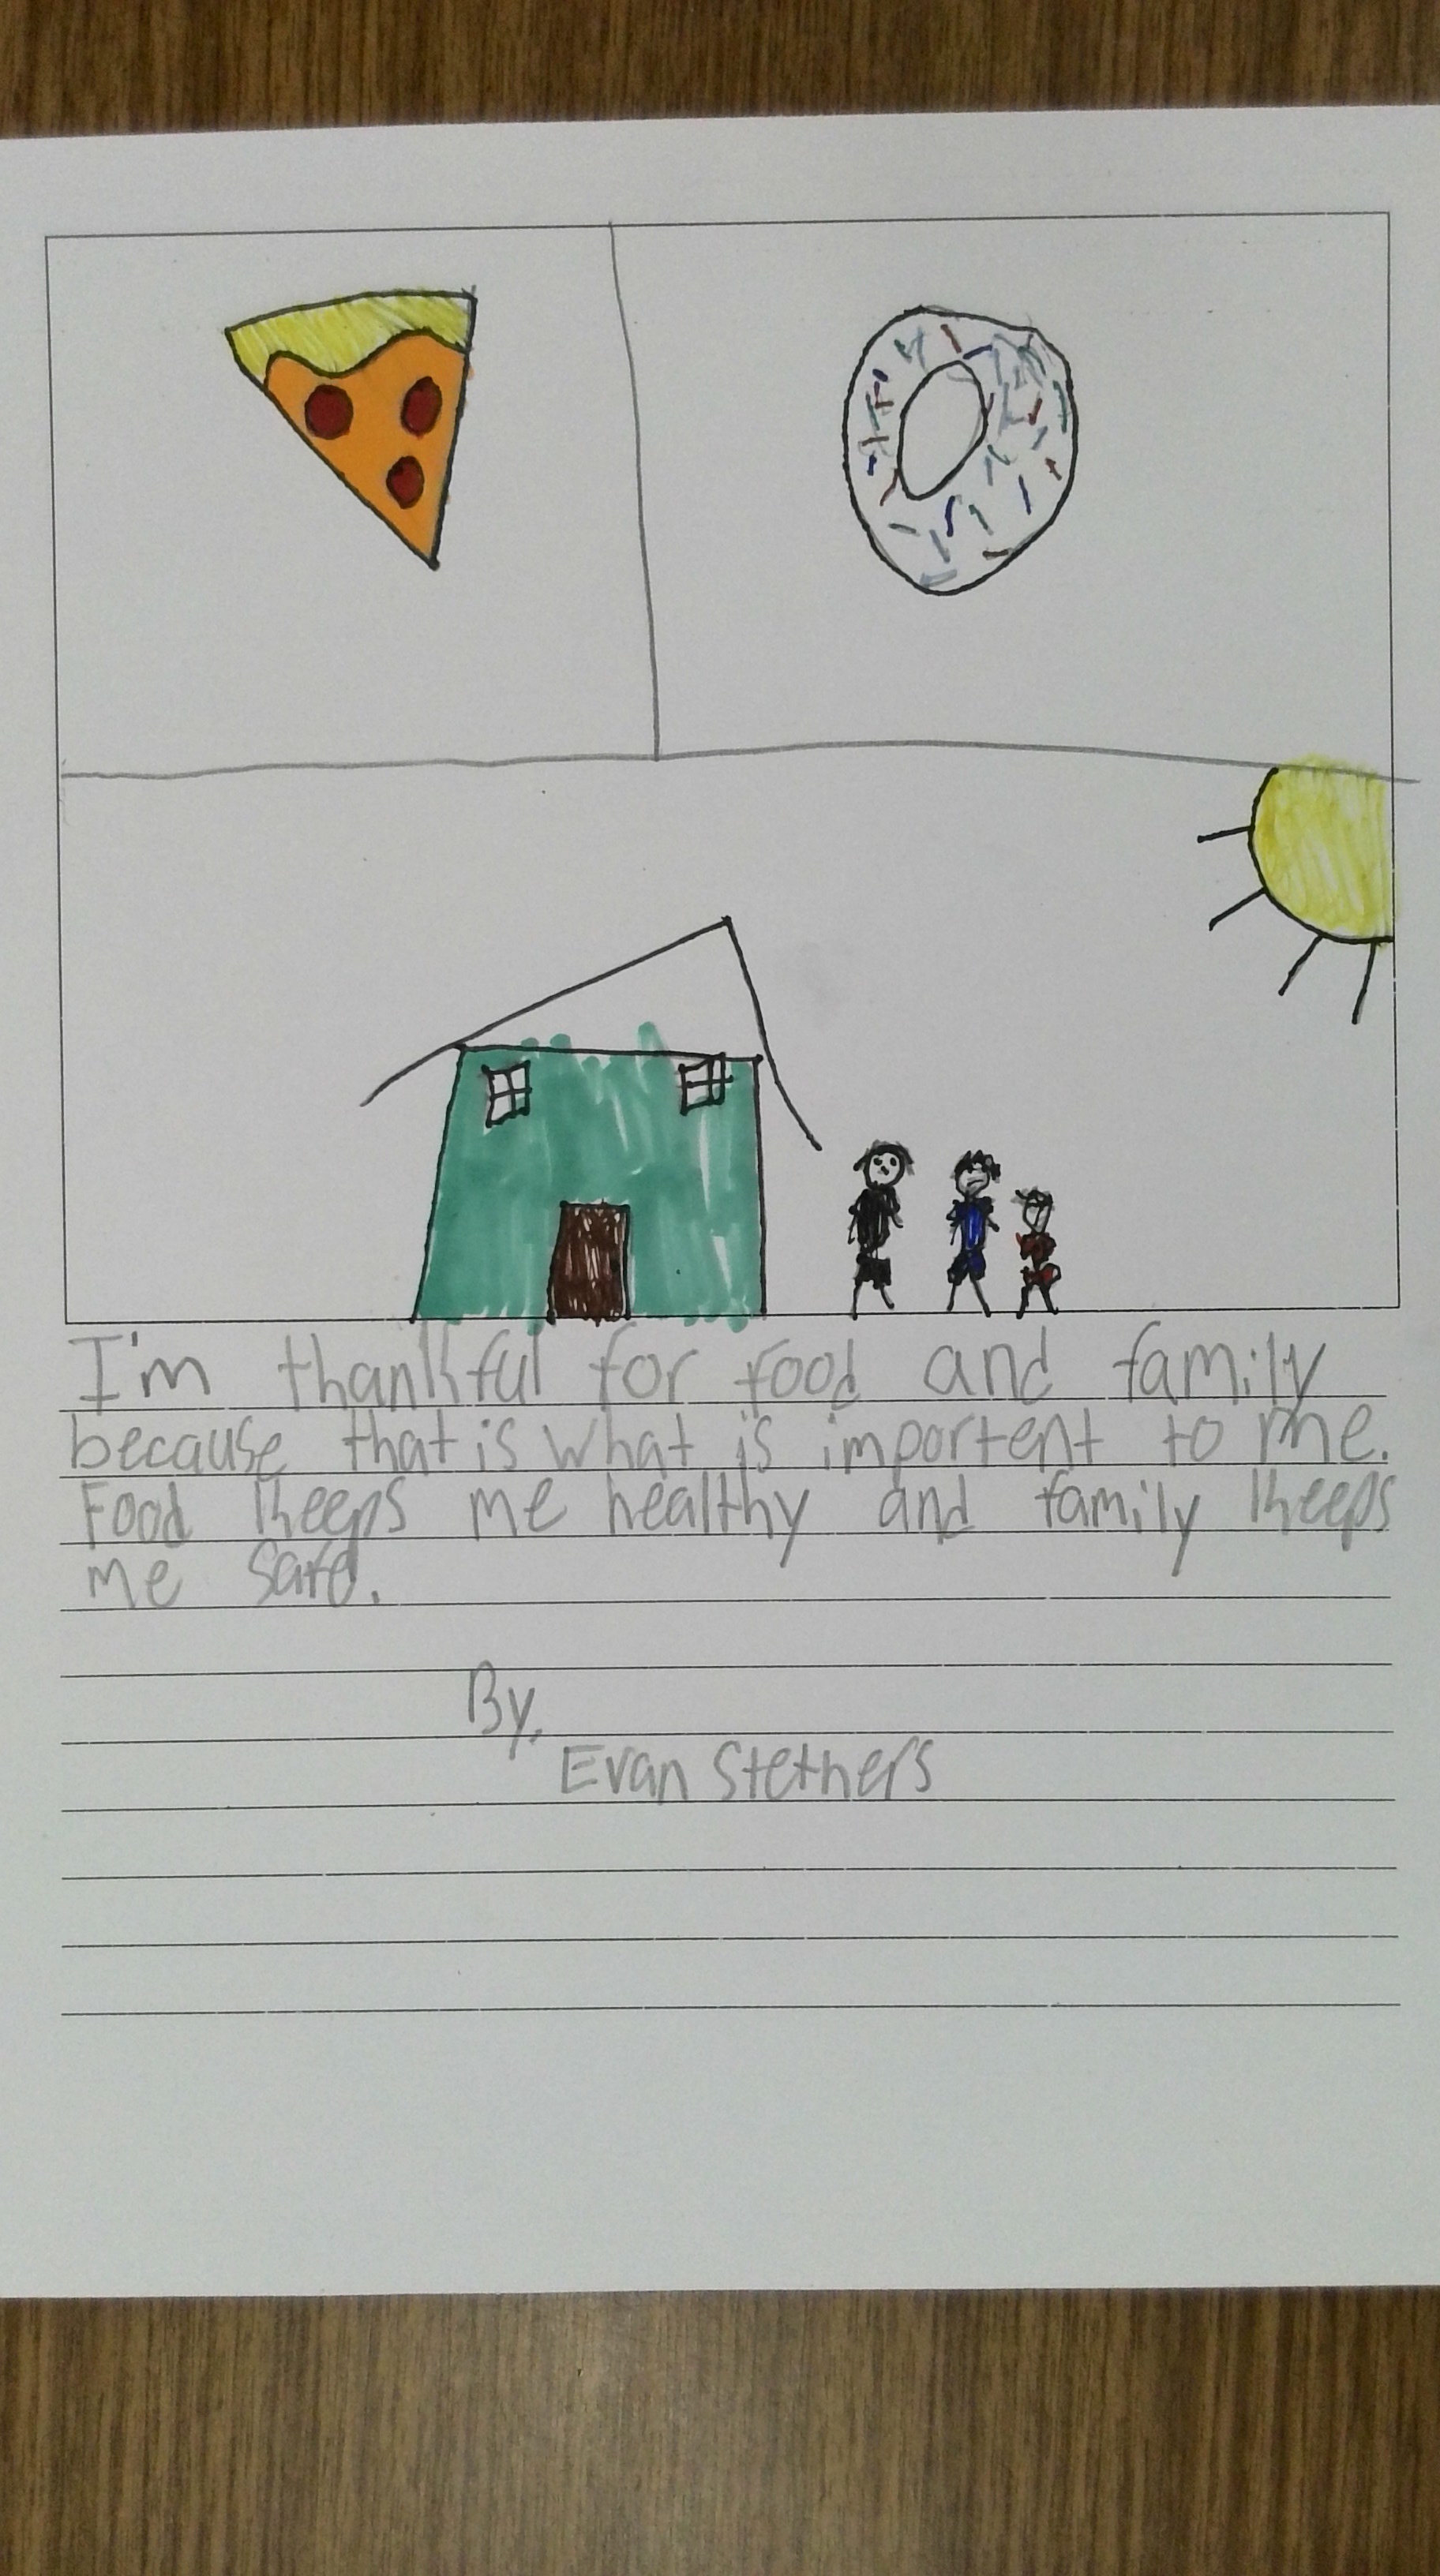 I'm thankful for Food and family
because that is what is importent to me.
Food Keeps me healthy and family Keeps
me safe.
By,
Evan Stethers